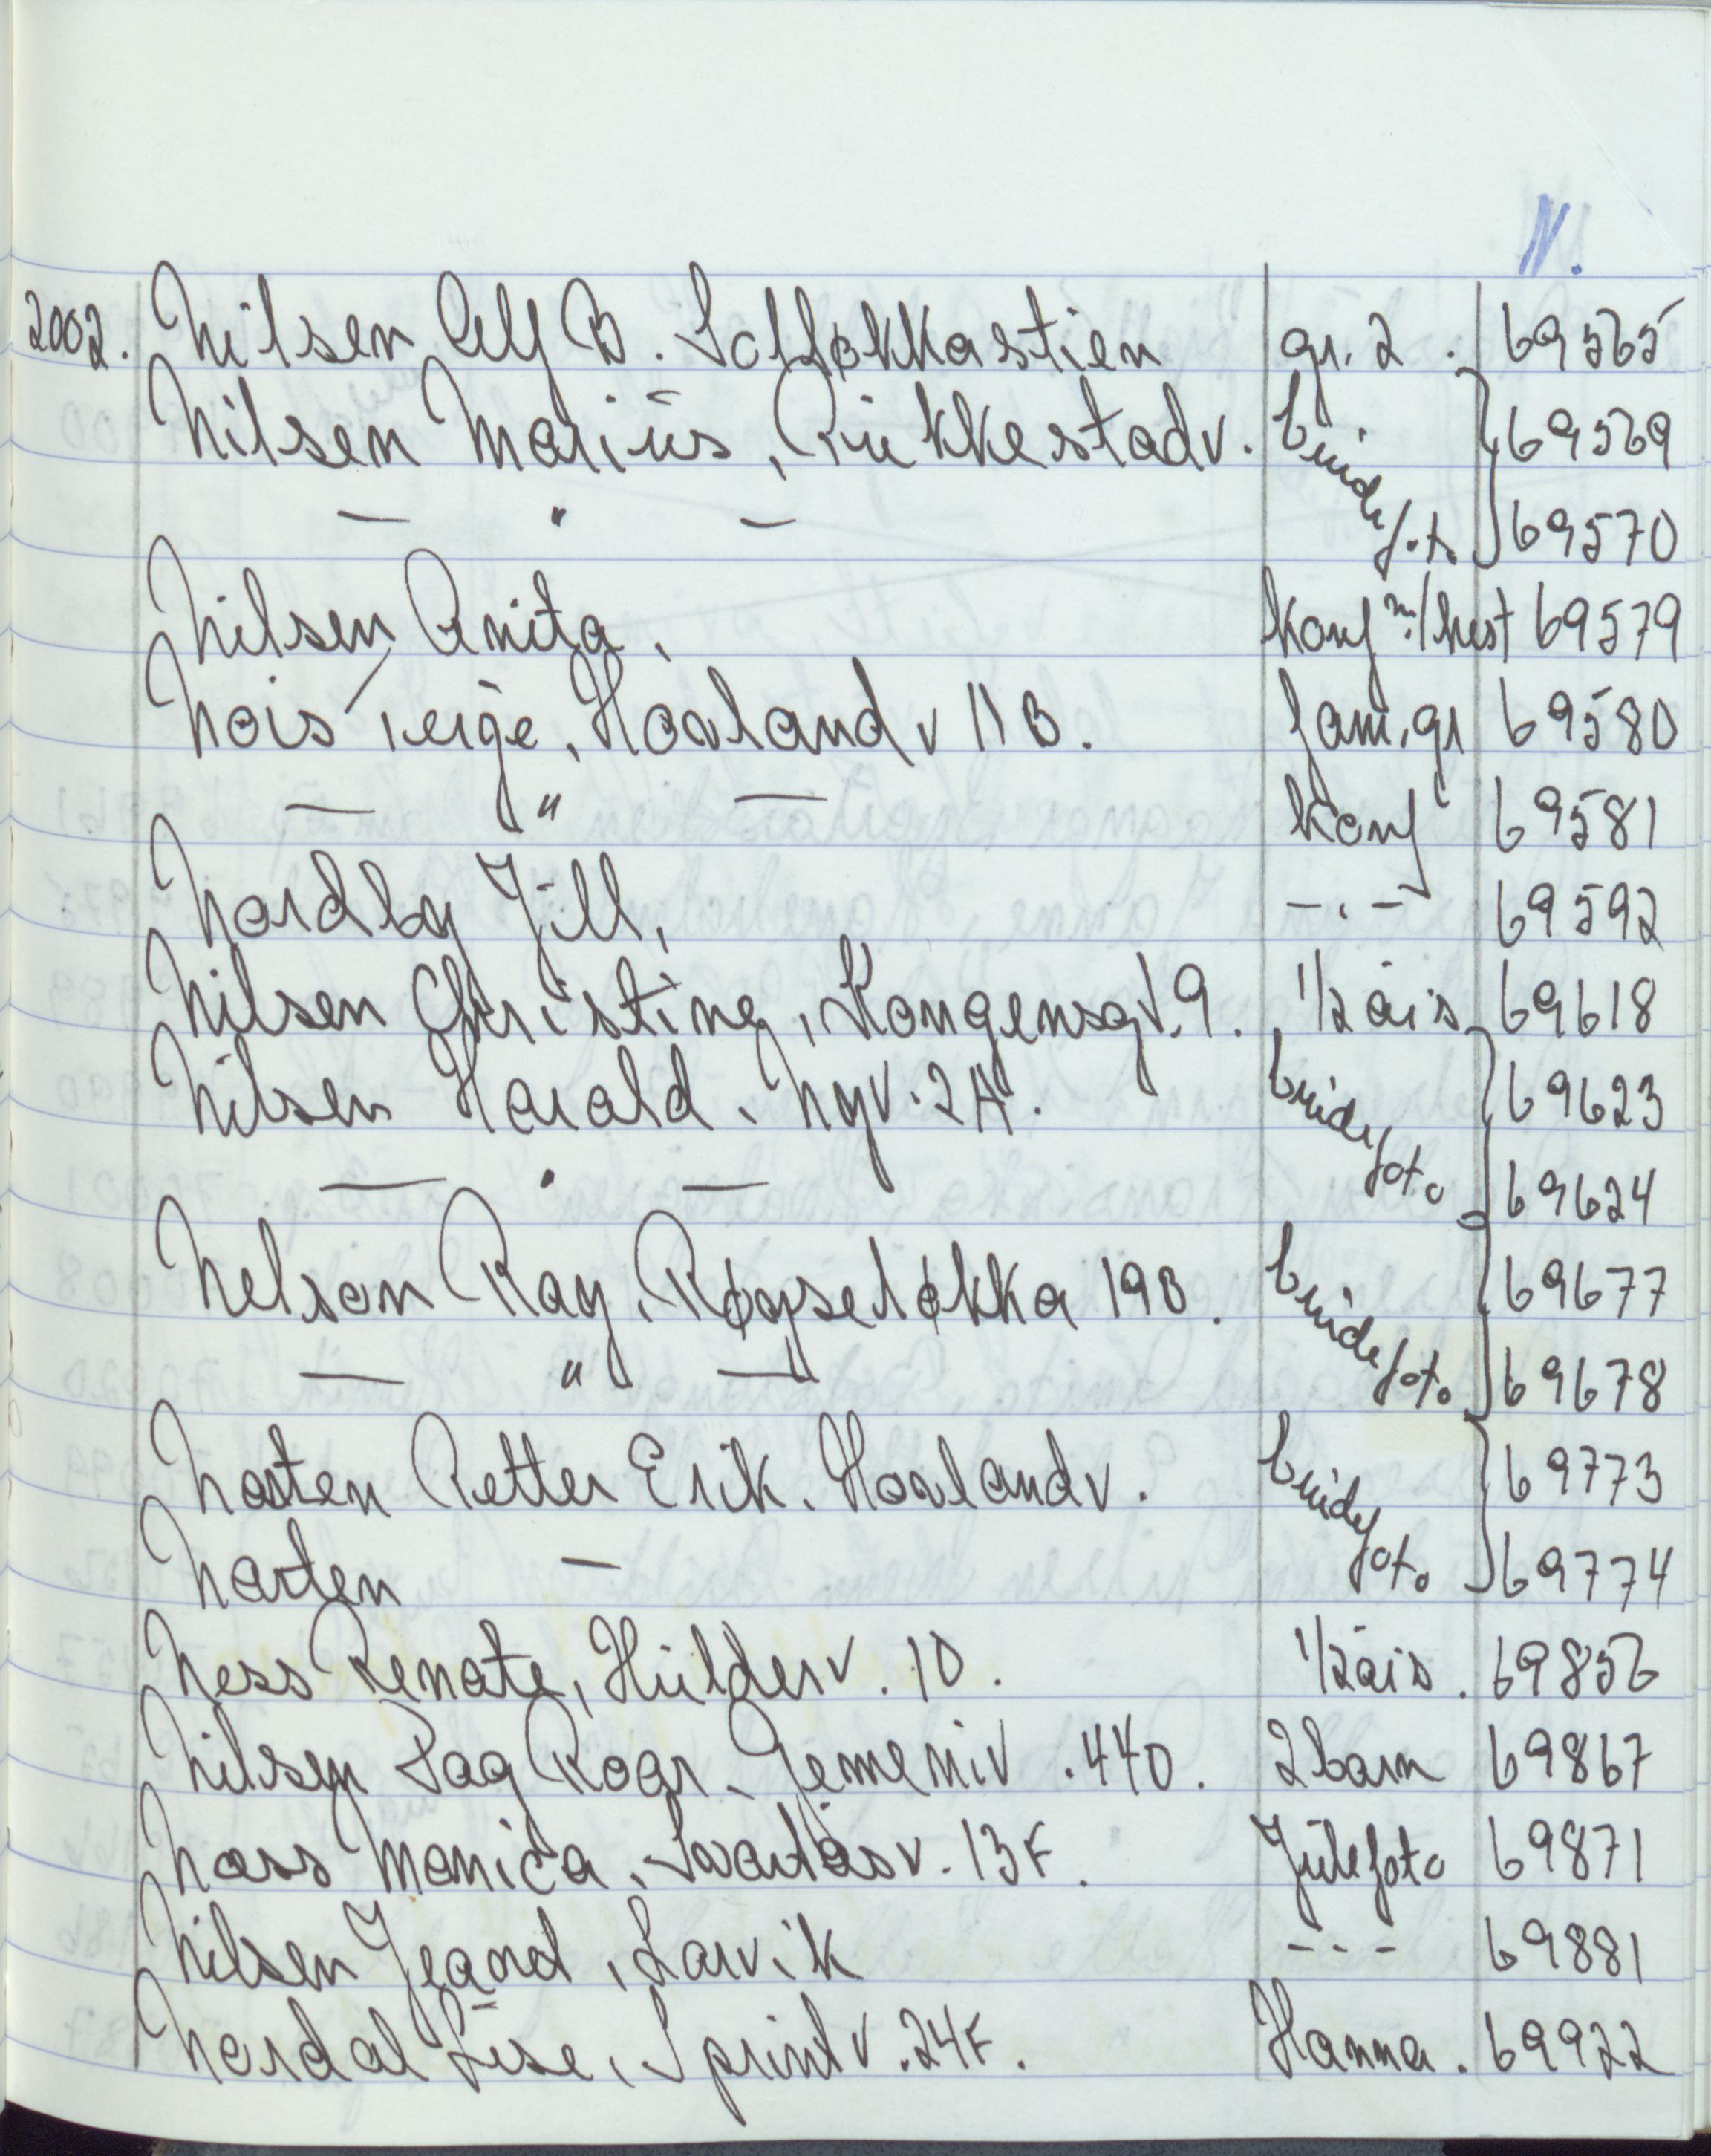 N.
2002. Nilsen Alf B. Solløkkastien gr. 2. 69565
Nilsen Marius, Rukkestadv. brudefoto 69569
— " — 69570
Nilsen Anita, konf m/hest 69579
Nois Terje, Hovlandv 11B. fam.gr 69580
— " — konf 69581
Nordby Jill, -"- 69592
Nilsen Christine, Kongensgt.9. 1/2 års 69618
Nilsen Harald. Nyv. 2A. brudefoto 69623
— " — 69624
Nelson Ray, Røyseløkka 19B. brudefoto 69677
— " — 69678
Narten Petter Erik. Hovlandv. brudefoto 69773
Narten — 69774
Ness Renate, Hulderv. 10. 1/2 års. 69856
Nilsen Dag Roar. Gemeniv. 44D. 2 barn 69867
Noss Monica, Svartåsv. 13F. Julefoto 69871
Nilsen, Larvik -"- 69881
Nordal Lise, Sprintv. 24F. Hanna. 69922